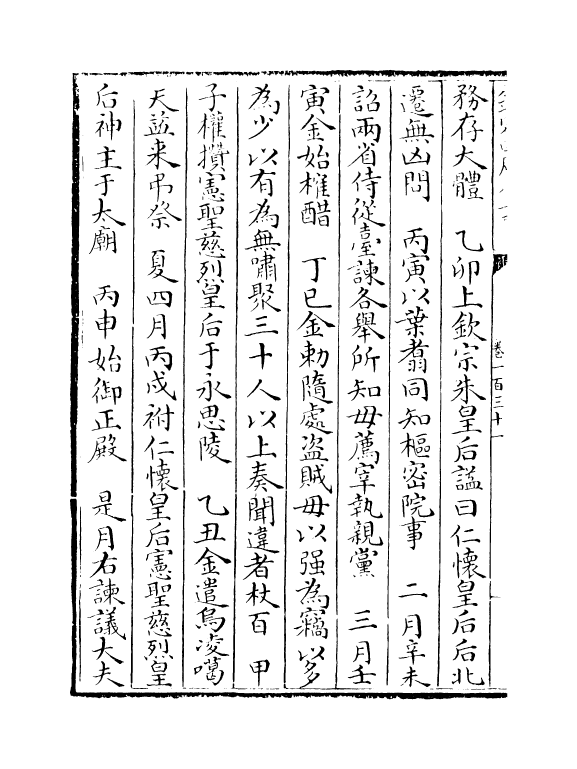 卷一百三十一
務存大體　乙卯上欽宗朱皇后諡曰仁懷皇后后北
遷無凶問　丙寅以葉翥同知樞密院事　二月辛未
詔兩省侍從臺諫各舉所知毋薦宰執親黨　三月壬
寅金始榷醋　丁巳金勅隨處盜賊毋以强為竊以多
為少以有為無嘯聚三十人以上奏聞違者杖百　甲
子權攢憲聖慈烈皇后于永思陵　乙丑金遣烏凌噶
天益来弔祭　夏四月丙戌祔仁懷皇后憲聖慈烈皇
后神主于太廟　丙申始御正殿　是月右諫議大夫